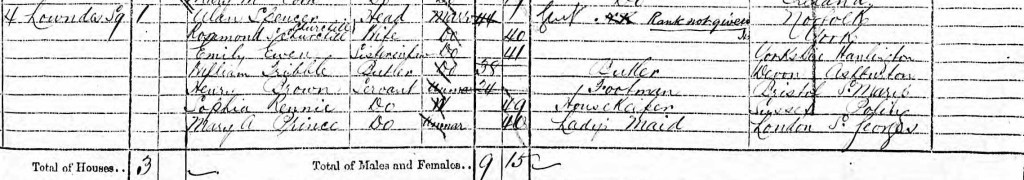 4 Lowndes Sq 1 Alan Spencer Churchill Head Mar 44 Norfolk
Rosamond S Churchill Wife Do 40 Rank not given York
Emily Ewen Sister in law Do 41 Yorkshire
William Gribble Butler Do 38 Butler Devon Ashburton
Henry Brown Servant Unmar 24 Footman Bristol St Marie
Sophia Rennie Do W 49 Housekeeper Sussex
Mary A Prince Do Unmar 40 Ladys Maid London St Georges
Total of Houses.. 3 Total of Males and Females.. 9 15